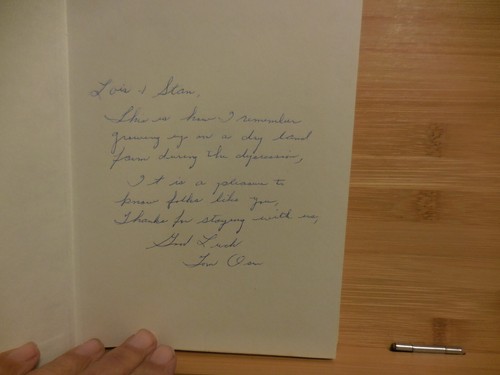 Lois & Stan,
This is how I remember
growing up on a dry land
farm during the depression,
It is a pleasure to
know folks like you,
Thanks for staying with us,
Good Luck